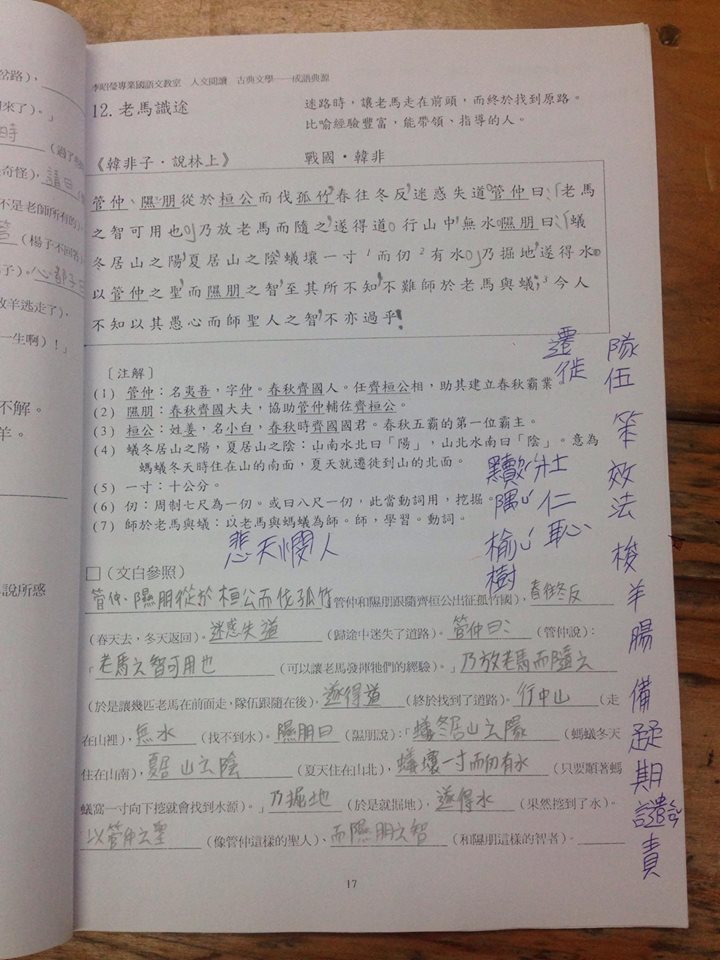 李昭瑩專業國語文教室　人文閱讀　古典文學——成語典源
12. 老馬識途
迷路時，讓老馬走在前頭，而終於找到原路。
比喻經驗豐富，能帶領、指導的人。
《韓非子・說林上》　戰國・韓非
管仲、隰朋從於桓公而伐孤竹，春往冬反，迷惑失道。管仲曰：「老馬
之智可用也。」乃放老馬而隨之，遂得道。行山中，無水，隰朋曰：「蟻
冬居山之陽，夏居山之陰，蟻壤一寸 1 而仞 2 有水。」乃掘地，遂得水。
以管仲之聖，而隰朋之智，至其所不知，不難師於老馬與蟻，3 今人
不知以其愚心而師聖人之智，不亦過乎！
〔注解〕
(1) 管仲：名夷吾，字仲。春秋齊國人。任齊桓公相，助其建立春秋霸業。
(2) 隰朋：春秋齊國大夫，協助管仲輔佐齊桓公。
(3) 桓公：姓姜，名小白，春秋時齊國國君。春秋五霸的第一位霸主。
(4) 蟻冬居山之陽，夏居山之陰：山南水北曰「陽」，山北水南曰「陰」。意為
螞蟻冬天時住在山的南面，夏天就遷徙到山的北面。
(5) 一寸：十公分。
(6) 仞：周制七尺為一仞。或曰八尺一仞，此當動詞用，挖掘。
(7) 師於老馬與蟻：以老馬與螞蟻為師。師，學習。動詞。
悲天憫人
□(文白參照)
管仲、隰朋從於桓公而伐孤竹(管仲和隰朋跟隨齊桓公出征孤竹國)，春往冬反
(春天去，冬天返回)。迷惑失道(歸途中迷失了道路)。管仲曰：(管仲說)：
「老馬之智可用也(可以讓老馬發揮牠們的經驗)。」乃放老馬而隨之
(於是讓幾匹老馬在前面走，隊伍跟隨在後)，遂得道(終於找到了道路)。行中山(走
在山裡)，無水(找不到水)。隰朋曰(隰朋說)：「蟻冬居山之陽(螞蟻冬天
住在山南)，夏居山之陰(夏天住在山北)，蟻壤一寸而仞有水(只要順著螞
蟻窩一寸向下挖就會找到水源)。」乃掘地(於是就掘地)，遂得水(果然挖到了水)。
以管仲之聖(像管仲這樣的聖人)、而隰朋之智(和隰朋這樣的智者)。
遷徙
隊伍
笨
效法
梭
羊腸
備
疑
期
譴責
壯
仁
恥
榆樹
17
岔路)，
來了)。」
時
奇怪)，請曰
不是老師所有的)
(楊子不回答
子)。心都子曰
放羊逃走了)，
一生啊)！」
不解。
羊。
說所惑